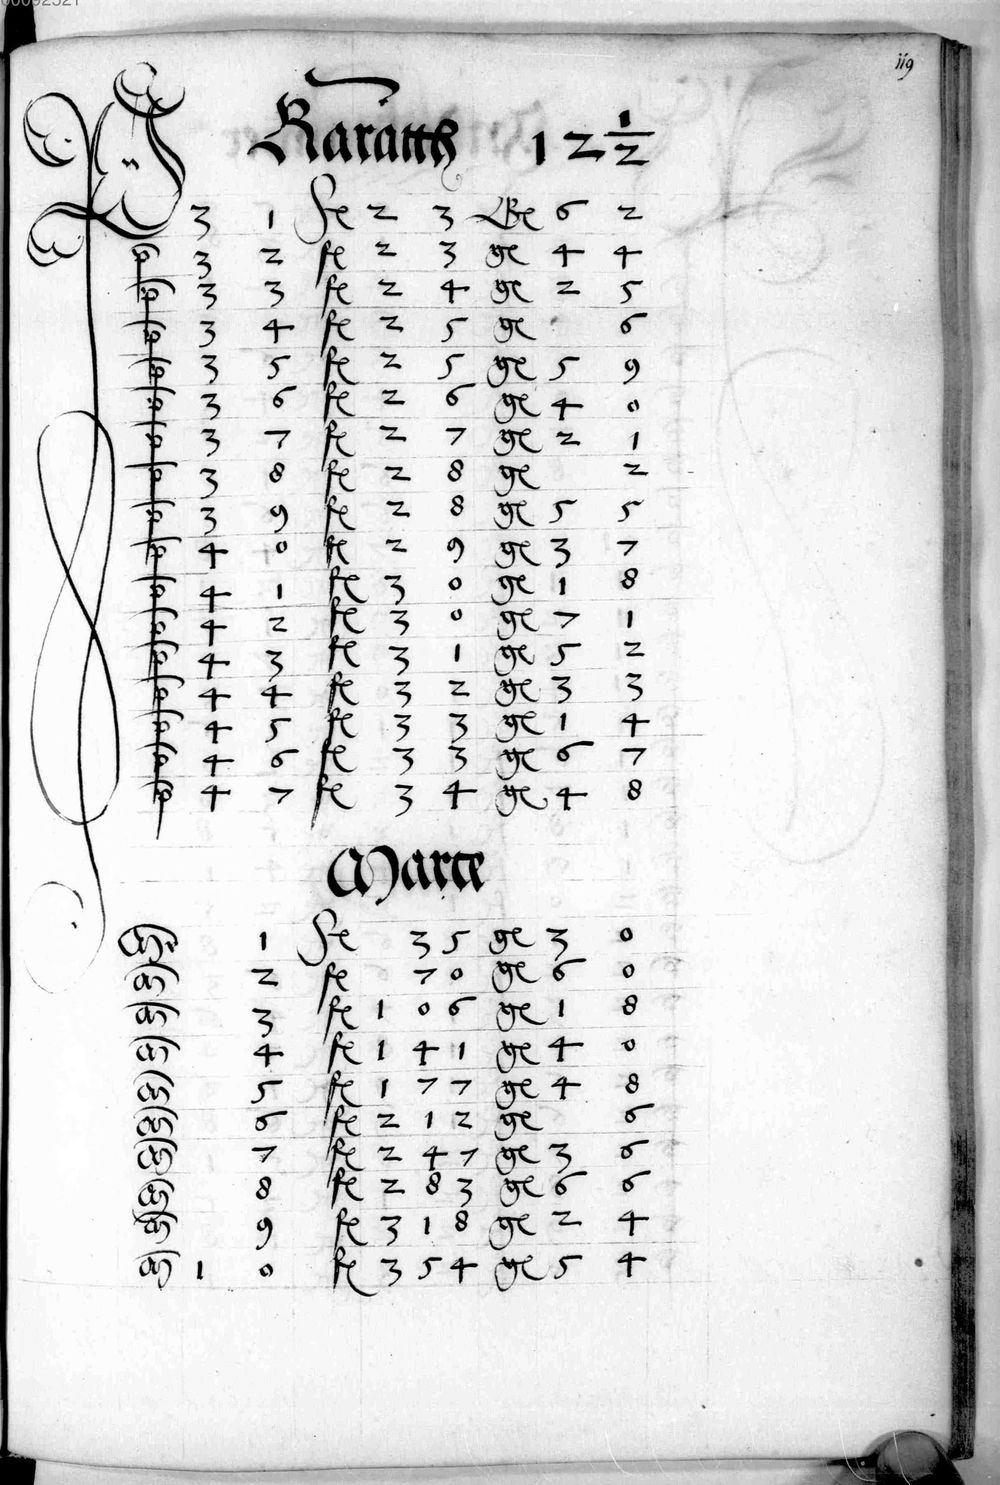 00092521
119
Karatth 12 1/2
3 1 fe 2 3 ge 6 2
3 2 fe 2 3 ge 4 4
3 3 fe 2 4 ge 2 5
3 4 fe 2 5 ge 6
3 5 fe 2 5 ge 5 9
3 6 fe 2 6 ge 4 0
3 7 fe 2 7 ge 2 1
3 8 fe 2 8 ge 2
3 9 fe 2 8 ge 5 5
4 0 fe 2 9 ge 3 7
4 1 fe 3 0 ge 1 8
4 2 fe 3 0 ge 7 1
4 3 fe 3 1 ge 5 2
4 4 fe 3 2 ge 3 3
4 5 fe 3 3 ge 1 4
4 6 fe 3 3 ge 6 7
4 7 fe 3 4 ge 4 8
Marck
1 fe 3 5 ge 3 0
2 fe 7 0 ge 6 0
3 fe 1 0 6 ge 1 8
4 fe 1 4 1 ge 4 0
5 fe 1 7 7 ge 4 8
6 fe 2 1 2 ge 6
7 fe 2 4 7 ge 3 6
8 fe 2 8 3 ge 6 6
9 fe 3 1 8 ge 2 4
1 0 fe 3 5 4 ge 5 4